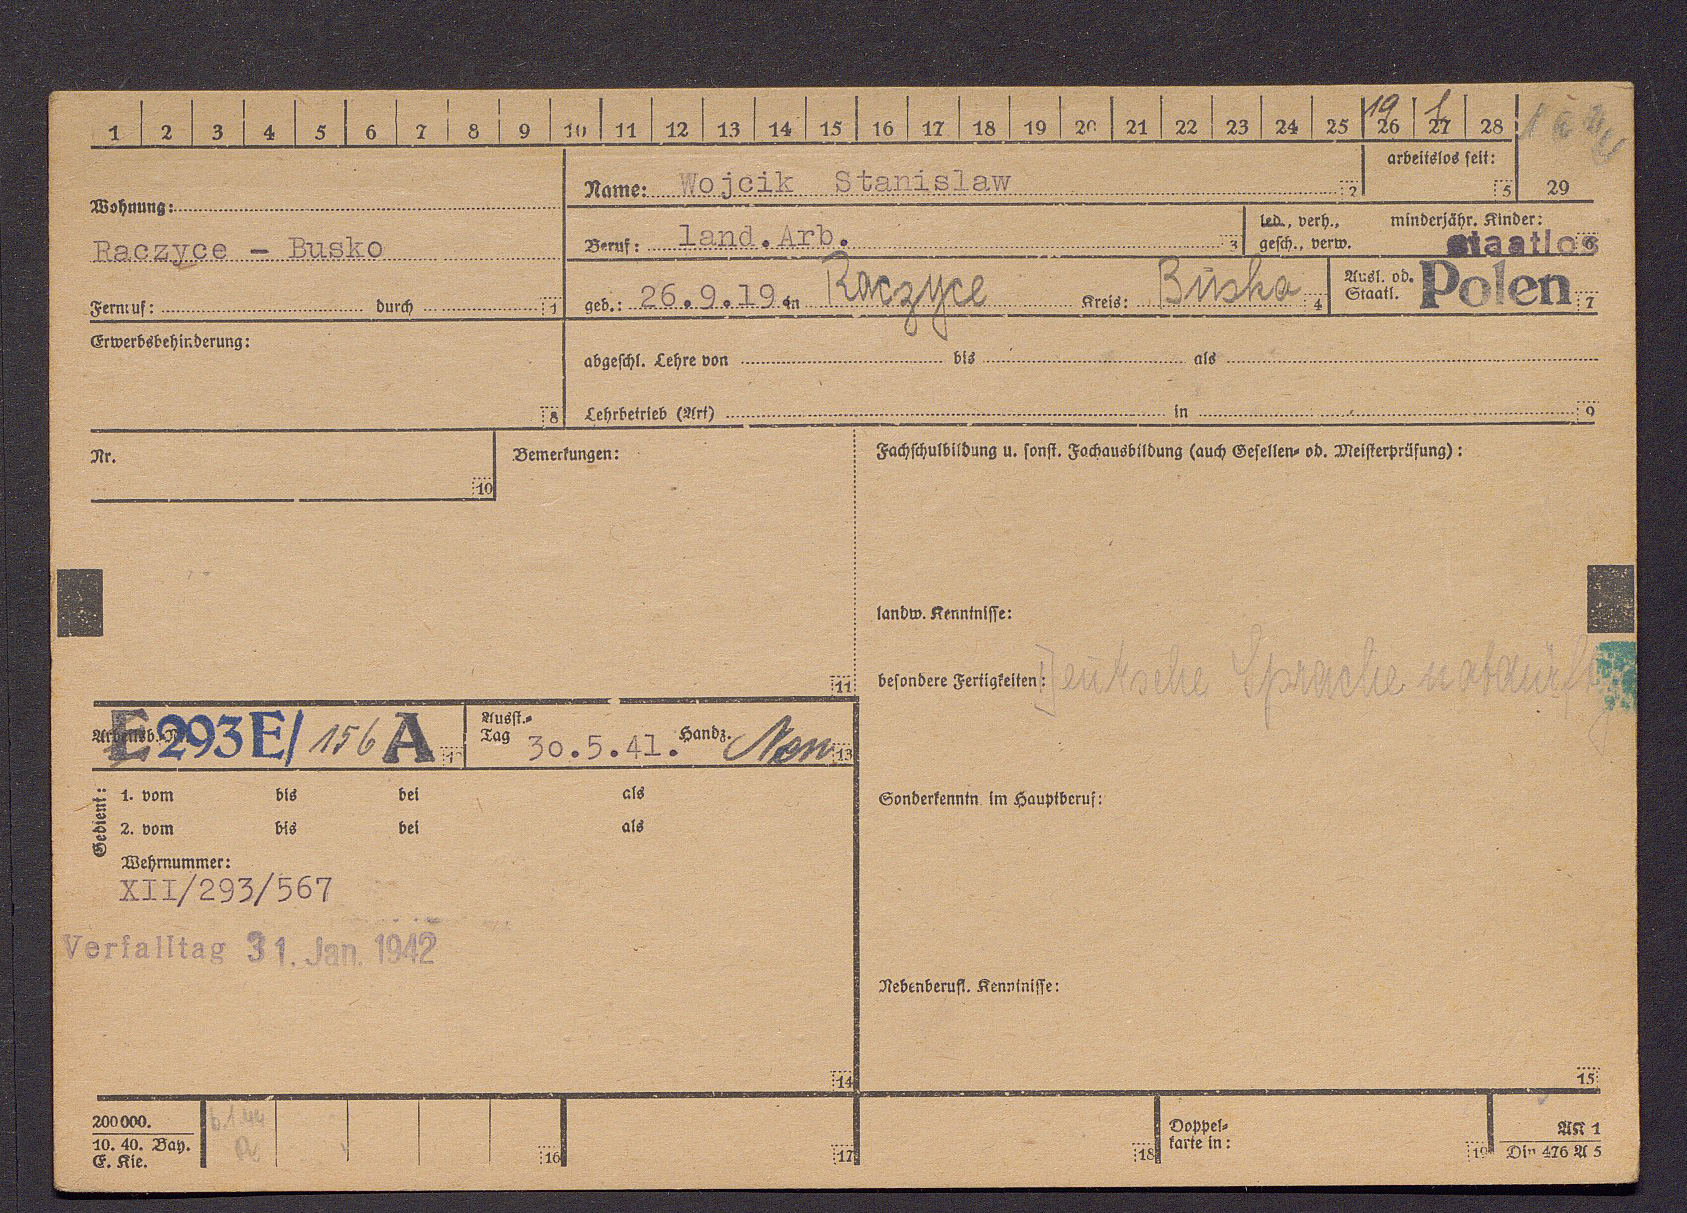 1 2 3 4 5 6 7 8 9 10 11 12 13 14 15 16 17 18 19 20 21 22 23 24 25 26 27 28
19 1
arbeitslos seit:
5 29
Name: Wojcik Stanislaw 2
Wohnung:
Raczyce - Busko
Fernruf: durch 1
Beruf: land.Arb. 3
led., verh., gesch., verw.
minderjähr. Kinder:
6
staatlos
geb.: 26.9.19. in Raczyce Kreis: Buska 4
Ausl. od. Staatl. Polen 7
Erwerbsbehinderung:
8
abgeschl. Lehre von bis als
Lehrbetrieb (Art) in 9
Nr.
10
Bemerkungen:
11
Fachschulbildung u. sonst. Fachausbildung (auch Gesellen- od. Meisterprüfung):
landw. Kenntnisse:
besondere Fertigkeiten: Deutsche Sprache notdürft
Sonderkenntn. im Hauptberuf:
Nebenberufl. Kenntnisse:
15
Arbeitsb.-Nr. E 293 E/ 156 A 12
Ausst.-Tag 30.5.41. Handz. 13
Gedient:
1. vom bis bei als
2. vom bis bei als
Wehrnummer:
XII/293/567
Verfalltag 31. Jan. 1942
14
200 000.
10. 40. Bay.
E. Kie.
16 17 18
Doppel-
karte in:
19
AK 1
Din 476 A 5